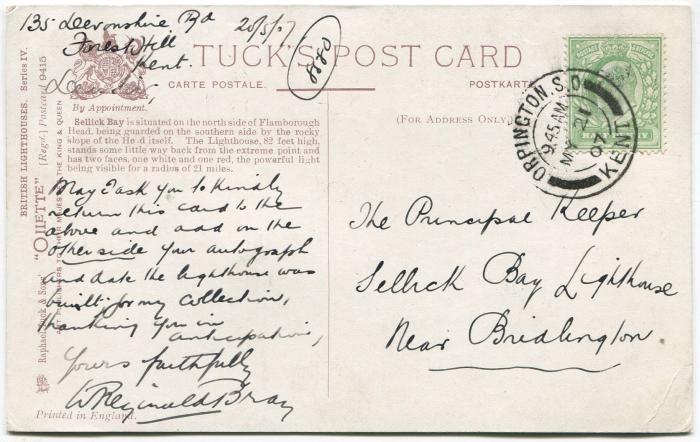 135 Devonshire Rd 20/5/07
Forest Hill
Kent.
880
TUCK'S POST CARD
CARTE POSTALE.
POSTKARTE
By Appointment.
(For Address Only)
Sellick Bay is situated on the north side of Flamborough
Head, being guarded on the southern side by the rocky
slope of the He d itself. The Lighthouse, 82 feet high,
stands some little way back from the extreme point and
has two faces, one white and one red, the powerful light
being visible for a radius of 21 miles.
May I ask you to kindly
return this card to the
above and add on the
other side your autograph
and date the lighthouse was
built for my collection,
thanking you in
anticipation,
Yours faithfully
W Reginald Bray
Printed in England.
BRITISH LIGHTHOUSES. Series IV.
"OILETTE" [Regd.] Postcard 9415
Raphael Tuck & Sons'
ART PUBLISHERS TO THEIR MAJESTIES THE KING & QUEEN
POSTAGE POSTAGE
HALFPENNY
ORPINGTON. S.O.
9.45 AM
MY 21
07
KENT
The Principal Keeper
Sellick Bay Lighthouse
Near Bridlington